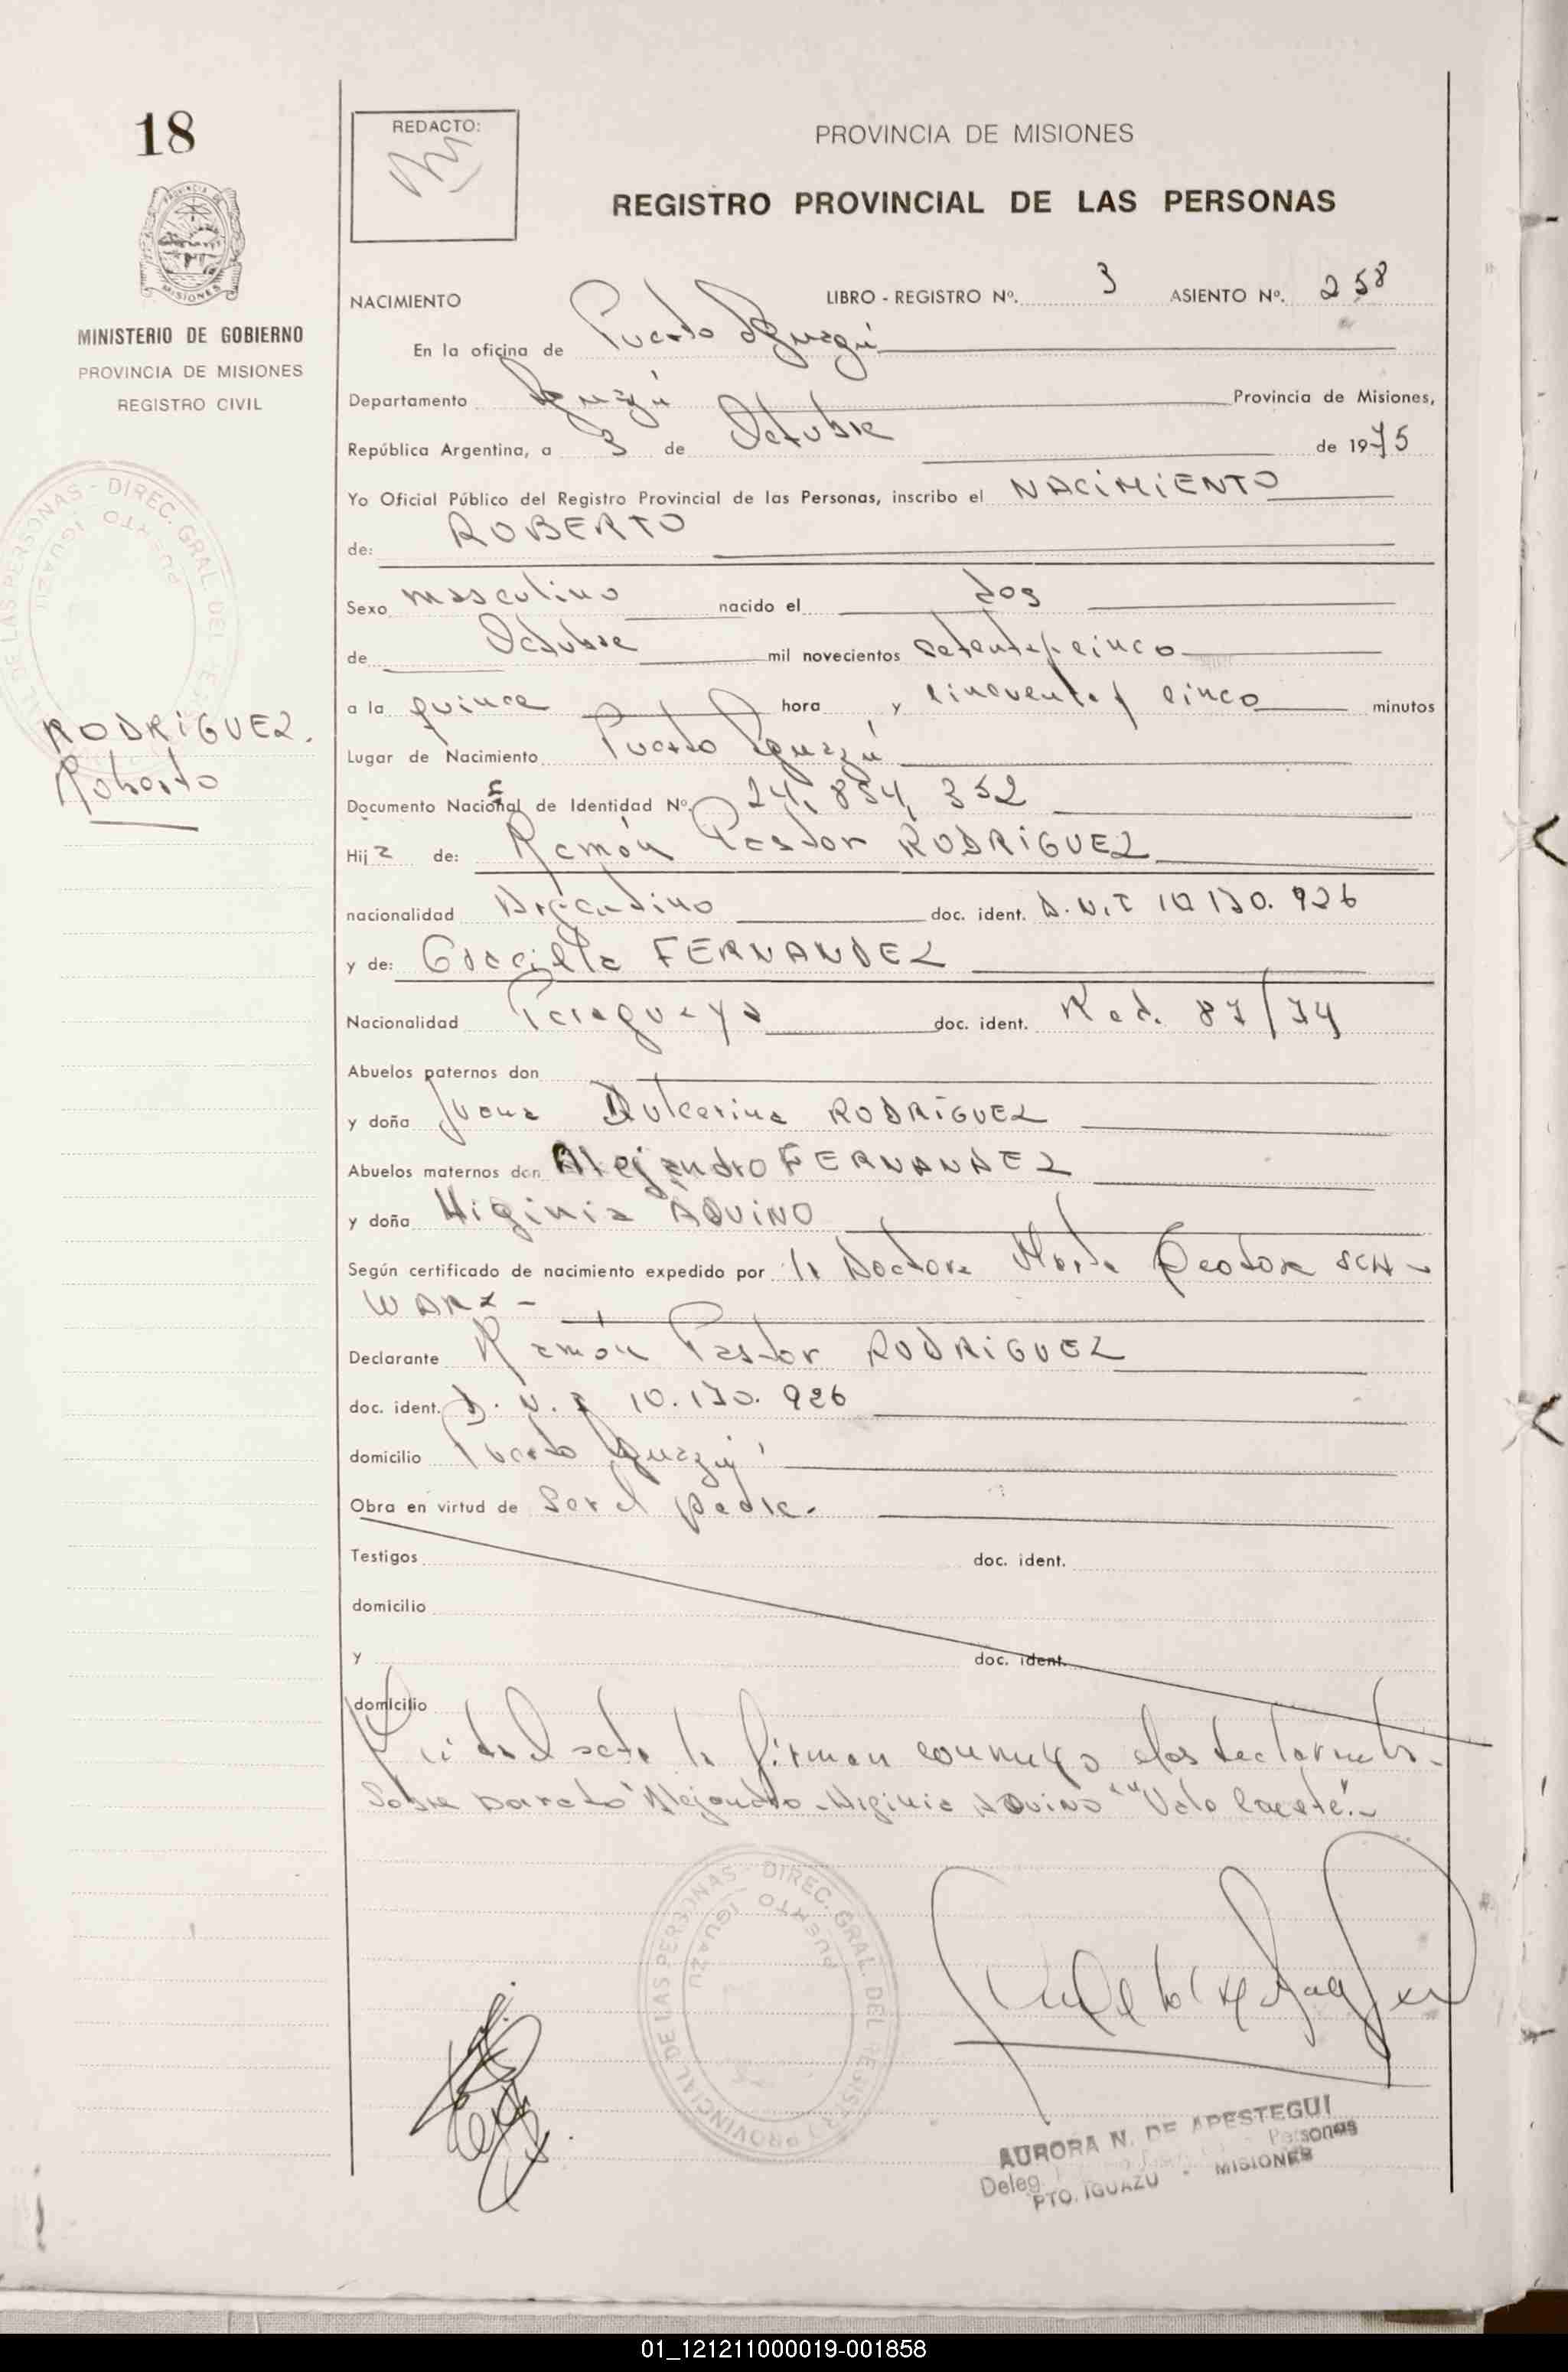 18
MINISTERIO DE GOBIERNO
PROVINCIA DE MISIONES
REGISTRO CIVIL
RODRIGUEZ.
Roberto
REDACTO:
PROVINCIA DE MISIONES
REGISTRO PROVINCIAL DE LAS PERSONAS
NACIMIENTO LIBRO - REGISTRO Nº. 3 ASIENTO Nº. 258
En la oficina de Puerto Iguazú
Departamento Iguazú Provincia de Misiones,
República Argentina, a 3 de Octubre de 1975
Yo Oficial Público del Registro Provincial de las Personas, inscribo el NACIMIENTO
de: ROBERTO
Sexo masculino nacido el dos
de Octubre mil novecientos setenta y cinco
a la quince hora y cincuenta y cinco minutos
Lugar de Nacimiento Puerto Iguazú
Documento Nacional de Identidad Nº 24.854.352
Hij de: Ramón Pastor RODRIGUEZ
nacionalidad Argentino doc. ident. D.N.I 10.170.926
y de: Graciela FERNANDEZ
Nacionalidad Paraguaya doc. ident. Rad. 87/74
Abuelos paternos don
y doña Juana Dulcerina RODRIGUEZ
Abuelos maternos don Alejandro FERNANDEZ
y doña Higinia AQUINO
Según certificado de nacimiento expedido por la Doctora Marta SCH-
WARZ -
Declarante Ramón Pastor RODRIGUEZ
doc. ident. D.N.I 10.170.926
domicilio Puerto Iguazú
Obra en virtud de ser el padre.
Testigos doc. ident.
domicilio
y doc. ident.
domicilio
Leida el acta la firman conmigo el declarante.
Sobre barrado "Alejandro - Higinia AQUINO" "Vale
DIREC. GRAL. DEL REGISTRO PROVINCIAL DE LAS PERSONAS
PUERTO IGUAZU
AURORA N. DE APESTEGUI
Deleg. Personas
PTO. IGUAZU - MISIONES
01_121211000019-001858